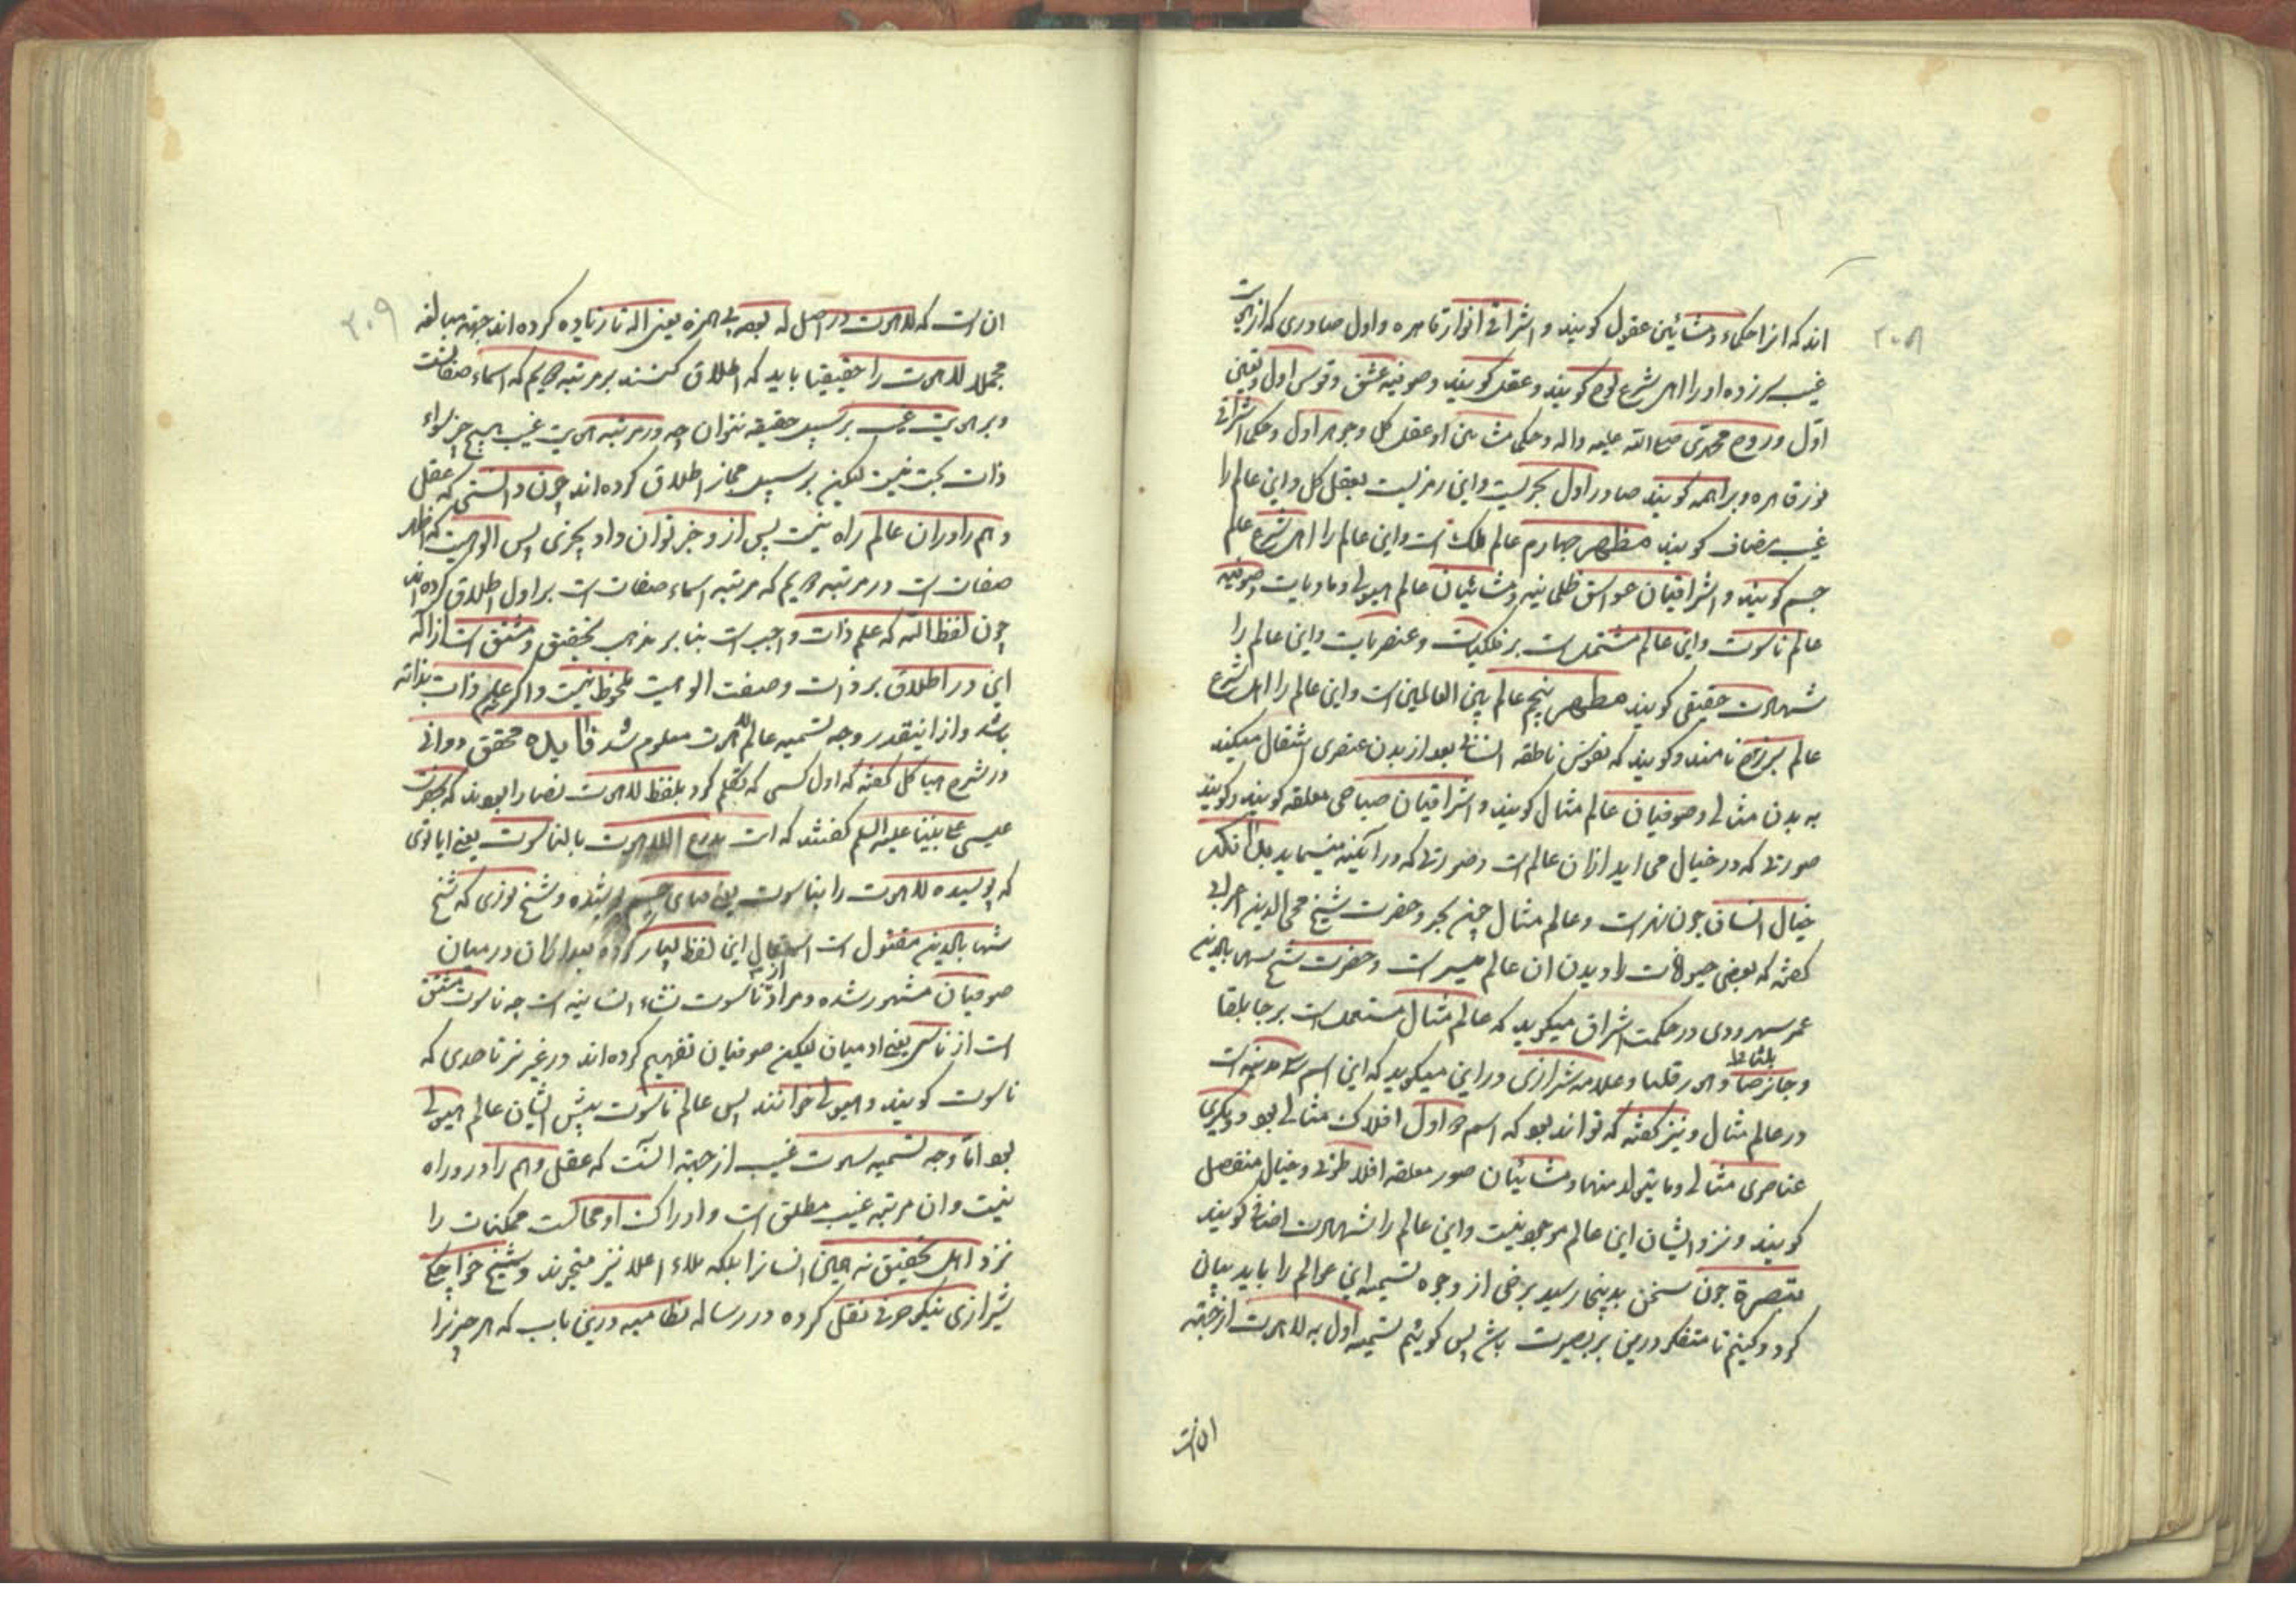 ۲۰۸
اند که انرا حکماء و مشائین عقول کویند و اشراقی انوار قاهره و اول صادری که از هویت
غیب سر زده او را اهل شرع لوح کویند و عقل کویند و صوفیه عشق و قوس اول و تعین
اول و روح محمدی صلی الله علیه واله و حکمی مشائین او عقل کل و جوهر اول و حکمی اشراقی
نور قاهره و براهمه کویند صادر اول بحریست و این رمزیست بعقل کل و این عالم را
غیب مضاف کویند مظهر چهارم عالم ملک است و این عالم را اهل شرع عالم
جسم کویند و اشراقیان غواسق ظلمانیه و مشائیان عالم هیولی و مادیات و صوفیه
عالم ناسوت و این عالم مشتملست بر فلکیات و عنصریات و این عالم را
شهادت حقیقی کویند مظهر پنجم عالم بین العالمین است و این عالم را اهل شرع
عالم برزخ نامند و کویند که نفوس ناطقه انسانی بعد از بدن عنصری انتقال میکند
به بدن مثالی و صوفیان عالم مثال کویند و اشراقیان صیاصی معلقه کویند و کویند
صورتی که در خیال می اید ازان عالم است و صورتی که در آئینه مینماید
خیال انسان چون نهر است و عالم مثال چون بحر و حضرت شیخ محی الدین اعرابی
کفته که بعضی حیوانات را دیدن ان عالم میسر است و حضرت شیخ شهاب الدین
عمر سهروردی در حکمت اشراق میکوید که عالم مثال مشتملست بر جابلقا
و جابرصا و هورقلیا و علامه شیرازی در این میکوید که این اسم سه مدینه است
در عالم مثال و نیز کفته که تواند بود که اسم اول افلاک مثالی بود و دیکری
عناصری مثالی و ما یتولد منهما و مشائیان صور معلقه افلاطونی و خیال منفصل
کویند و نزد ایشان این عالم موجود نیست و این عالم را شهادت اضافی کویند
تبصرة چون سخن بدینجا رسید برخی از وجوه تسمیه این عوالم را باید بیان
کرد و کنیم تا متفکر درین بر بصیرت باشد پس کوئیم تسمیه اول به لاهوت از جهة
ان است
۲۰۹
ان است که لاهوت در اصل له بعد بی همزه یعنی اله تا زیاده کرده اند جهة مبالغه
مجملا لاهوت را حقیقیا باید که اطلاق کنند بر مرتبه که اسماء صفاتست
و بر هویت غیب بر سبیل حقیقه نتوان چه در مرتبه هویت غیب هیچ جز سواء
ذات بحت نیست لیکن بر سبیل مجاز اطلاق کرده اند چون دانستی که عقل
و هم را دران عالم راه نیست پس از و خبر نتوان داد بچیزی پس الوهیت که
صفات است در مرتبه که مرتبه اسماء صفات است بر اول اطلاق کرده اند
چون لفظ الله که علم ذات واجب است بنا بر مذهب تحقیق و مشتق است از اله
این در اطلاق بر ذات وصفت الوهیت ملحوظ نیست و اکرچه علم ذات بذاته
باشد و از اینقدر وجه تسمیه عالم لاهوت معلوم شد فایده محقق دوانی
در شرح هیاکل کفته که اول کسی که تکلم کرد بلفظ لاهوت نصارا بودند که بحضرت
عیسی علی نبینا علیه السلم کفتند که انت تدرع اللاهوت بالناسوت یعنی ایا توی
که پوشیده لاهوت را بناسوت یعنی جسم و شیخ نوری که شیخ
شهاب الدین مقتول است استعمال این لفظ بسیار کرده بعد ازان در میان
صوفیان مشهور شده و مراد از ناسوت نشاء انسانیه است چه ناسوت مشتق
است از ناس یعنی ادمیان لیکن صوفیان تفهیم کرده اند در غیر نیز تا حدی که
ناسوت کویند و هیولی خوانند پس عالم ناسوت پیش ایشان عالم هیولی
بود اما وجه تسمیه هویت غیب از جهة انست که عقل و هم را در و راه
نیست و ان مرتبه غیب مطلق است و ادراک او محالست ممکنات را
نزد اهل تحقیق نه همین انسانرا بلکه ملاء اعلا نیز متحیرند و شیخ خواجکی
شیرازی نیکو حرفی نقل کرده در رساله نظامیه درین باب که هر چیز را